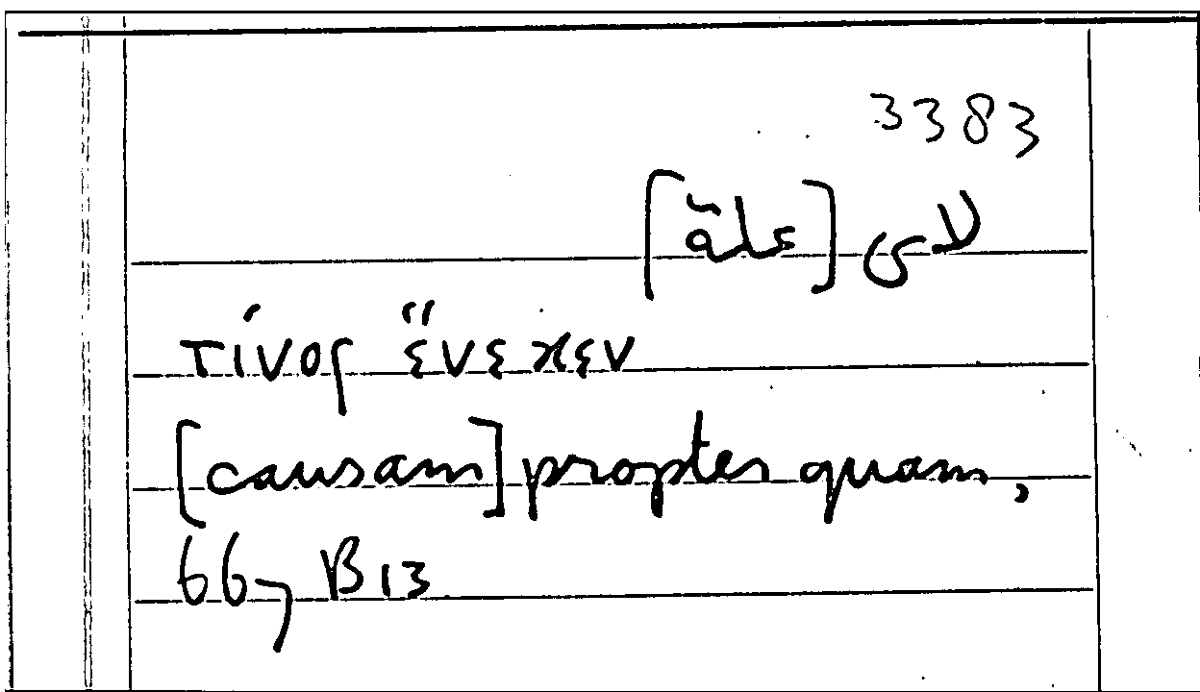 3383
لاى [علة]
τίνος ἕνεκεν
[causam] propter quam,
667 B13